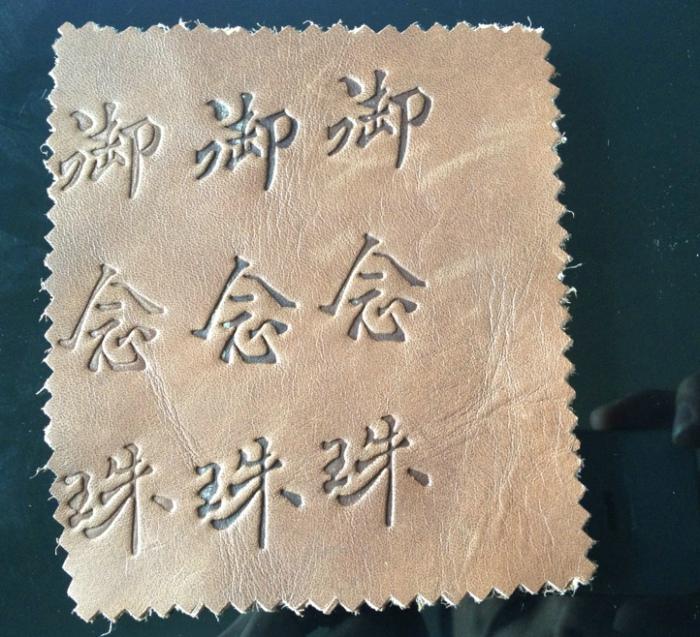 御御御
念念念
珠珠珠